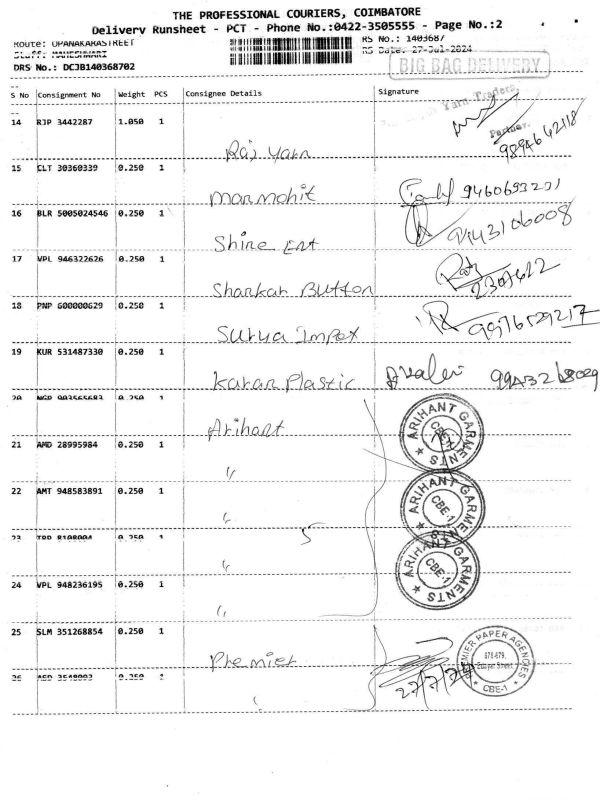 THE PROFESSIONAL COURIERS, COIMBATORE
Delivery Runsheet - PCT - Phone No.:0422-3505555 - Page No.:2
Route: OPANAKARASTREET
RS No.: 1403687
Staff: MAHESHWARI
RS Date: 27-Jul-2024
BIG BAG DELIVERY
DRS No.: DCJB140368702
S No Consignment No Weight PCS Consignee Details Signature
Yarn Traders,
Partner.
14 RJP 3442287 1.050 1 Raj Yarn 9894642118
15 CLT 30360339 0.250 1 Manmohit 9460693231
16 BLR 5005024546 0.250 1 Shire Ent
17 VPL 946322626 0.250 1 Shankar Button
18 PNP 600000629 0.250 1 Surya Impex
19 KUR 531487330 0.250 1 Karan Plastic
20 0.250 1 Arihant
ARIHANT GARMENTS CBE-1
21 AMD 28995984 0.250 1 "
22 AMT 948583891 0.250 1 "
ARIHANT GARMENTS CBE-1
23 0.250 1 " 5
ARIHANT GARMENTS CBE-1
24 VPL 948236195 0.250 1 "
25 SLM 351268854 0.250 1 Premier 27/7/24
PREMIER PAPER AGENCIES
CBE-1
26 0.250 1 "